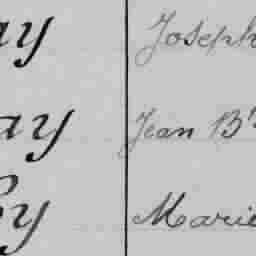 ay Joseph
ay Jean Bte
ey Marie